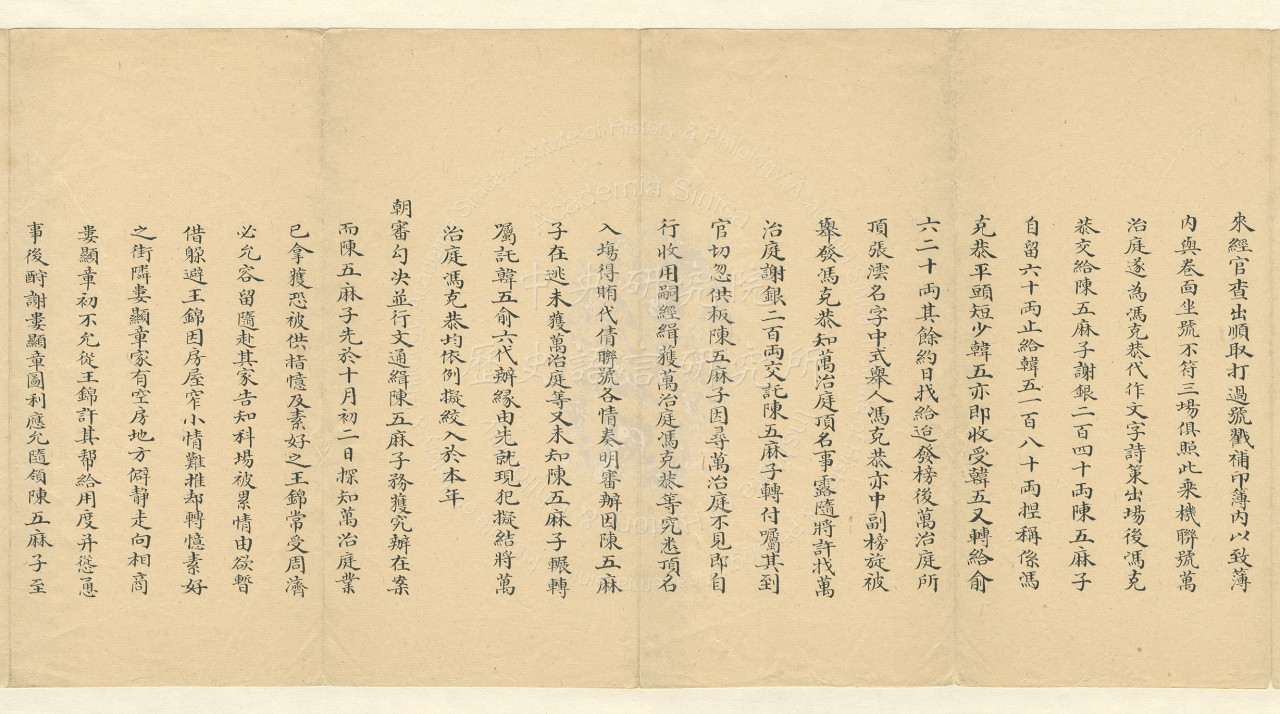 來經官查出順取打過號戳補印簿內以致簿
內與卷面坐號不符三場俱照此乘機聯號萬
治庭遂為馮克恭代作文字詩策出場後馮克
恭交給陳五麻子謝銀二百四十両陳五麻子
自留六十両止給韓五一百八十両捏稱係馮
克恭平頭短少韓五亦即收受韓五又轉給俞
六二十両其餘約日找給迨發榜後萬治庭所
頂張澐名字中式舉人馮克恭亦中副榜旋被
舉發馮克恭知萬治庭頂名事露隨將許找萬
治庭謝銀二百両交託陳五麻子轉付囑其到
官切忽供板陳五麻子因尋萬治庭不見即自
行收用嗣經緝獲萬治庭馮克恭等究悉頂名
入場得賄代倩聯號各情奏明審辦因陳五麻
子在逃未獲萬治庭等又未知陳五麻子輾轉
囑託韓五俞六代辦緣由先就現犯擬結將萬
治庭馮克恭均依例擬絞入於本年
朝審勾決並行文通緝陳五麻子務獲究辦在案
而陳五麻子先於十月初二日探知萬治庭業
已拿獲恐被供指憶及素好之王錦常受周濟
必允容留隨赴其家告知科場被累情由欲暫
借躲避王錦因房屋窄小情難推却轉憶素好
之街隣婁顯章家有空房地方僻靜走向相商
婁顯章初不允從王錦許其帮給用度并慫恿
事後酧謝婁顯章圖利應允隨領陳五麻子至
中央研究院
歷史語言研究所
Academia Sinica